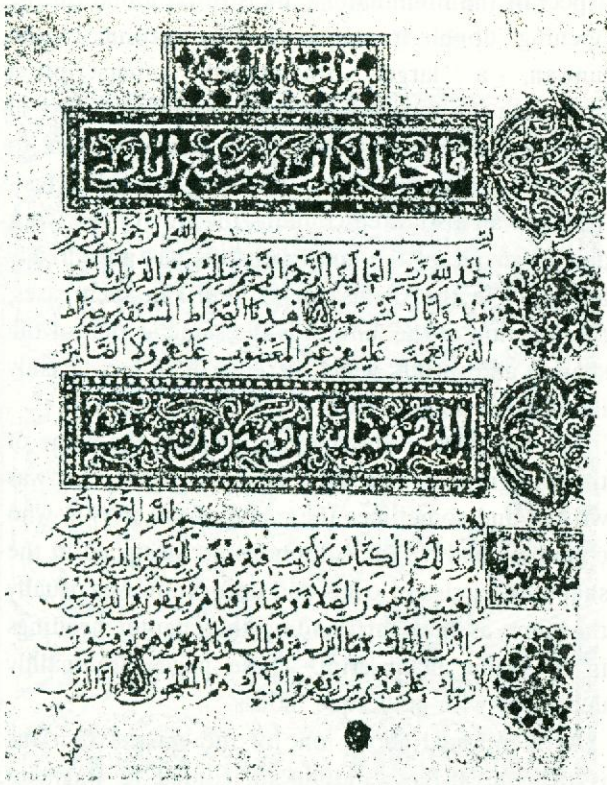 فاتحة الكتاب سبع ايات
بسم الله الرحمن الرحيم
الحمد لله رب العالمين الرحمن الرحيم مالك يوم الدين اياك
نعبد واياك نستعين اهدنا الصراط المستقيم صراط
الذين انعمت عليهم غير المغضوب عليهم ولا الضالين
البقرة مايتان وثمنون وست
بسم الله الرحمن الرحيم
الم ذلك الكتاب لا ريب فيه هدى للمتقين الذين يؤمنون
بالغيب ويقيمون الصلاة ومما رزقناهم ينفقون والذين يؤمنون
بما انزل اليك وما انزل من قبلك وبالاخرة هم يوقنون
اوليك على هدى من ربهم واوليك هم المفلحون ان الذين